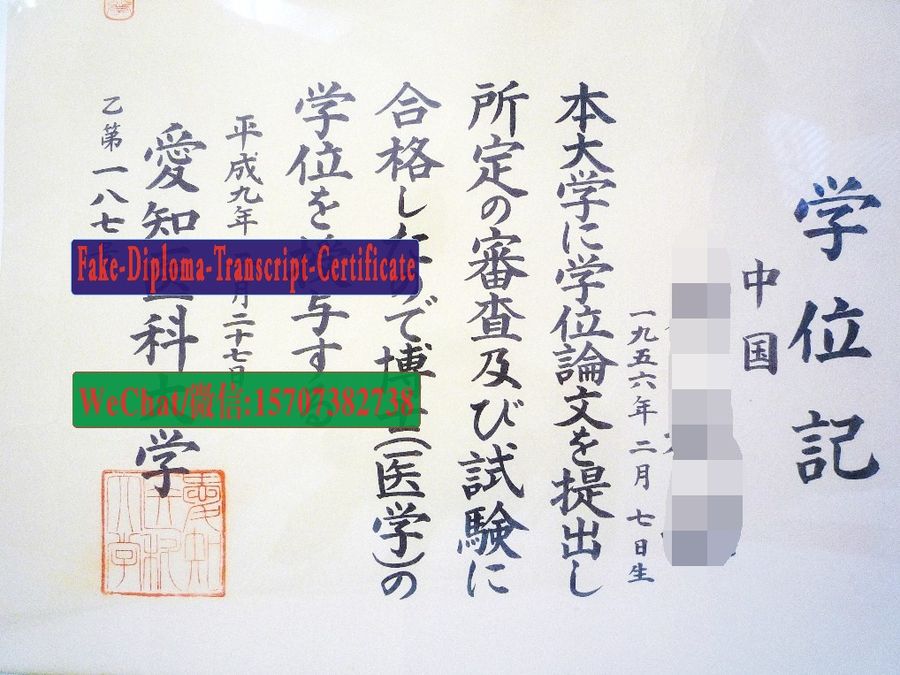 学位記
中国
一九五六年二月七日生
本大学に学位論文を提出し
所定の審査及び試験に
合格したので博士(医学)の
学位を授与する
平成九年月二十七日
愛知医科大学
乙第一八七
Fake-Diploma-Transcript-Certificate
WeChat/微信:15707382738